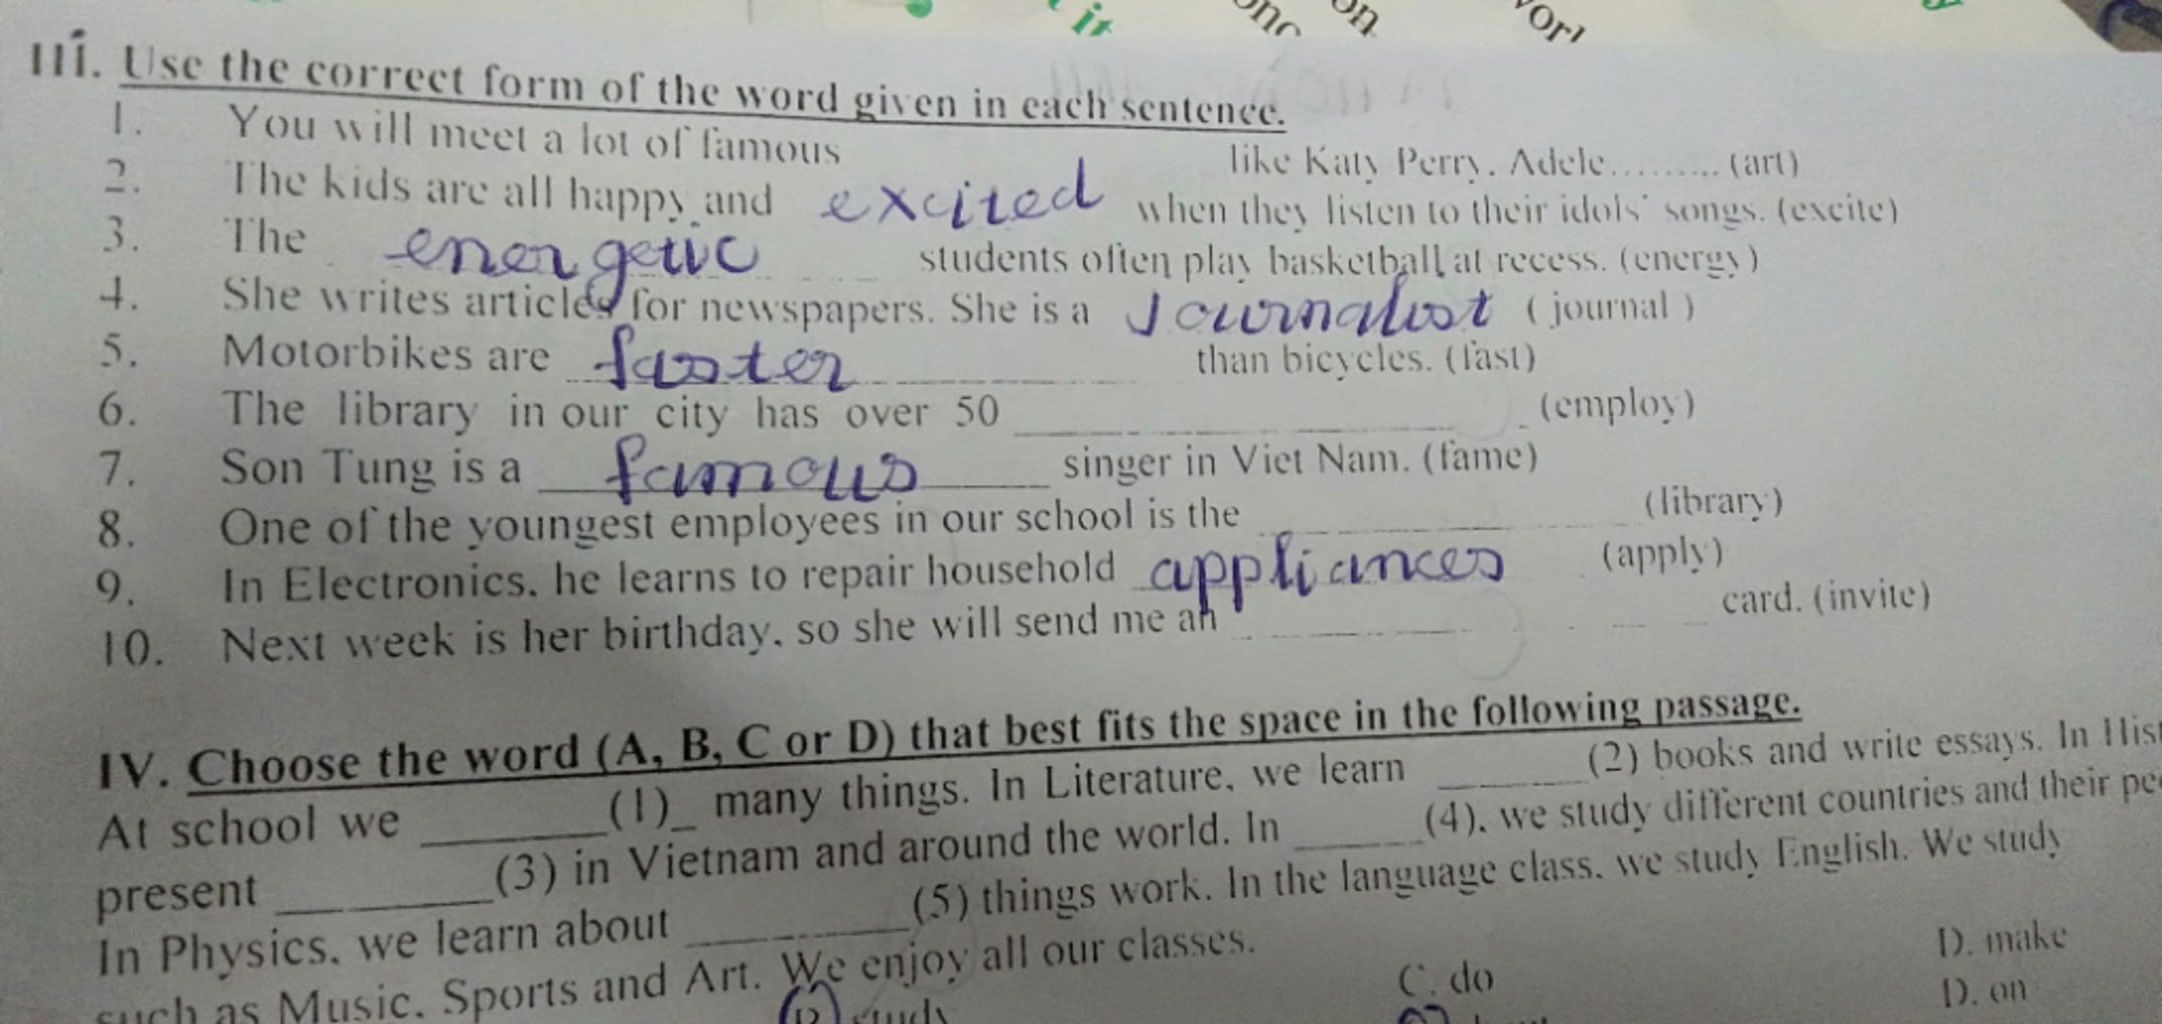 it
on
III. Use the correct form of the word given in each sentence.
1. You will meet a lot of famous like Katy Perry, Adele......... (art)
2. The kids are all happy and excited when they listen to their idols' songs. (excite)
3. The energetic students often play basketball at recess. (energy)
4. She writes articles for newspapers. She is a Journalist ( journal )
5. Motorbikes are faster than bicycles. (fast)
6. The library in our city has over 50 ____ (employ)
7. Son Tung is a famous singer in Viet Nam. (fame)
8. One of the youngest employees in our school is the ____ (library)
9. In Electronics, he learns to repair household appliances (apply)
10. Next week is her birthday, so she will send me an ____ card. (invite)
IV. Choose the word (A, B, C or D) that best fits the space in the following passage.
At school we ______(1)_ many things. In Literature, we learn ______(2) books and write essays. In
present ______(3) in Vietnam and around the world. In ______(4), we study different countries and their
In Physics, we learn about ______(5) things work. In the language class, we study English. We study
such as Music, Sports and Art. We enjoy all our classes.
study C. do D. make
D. on